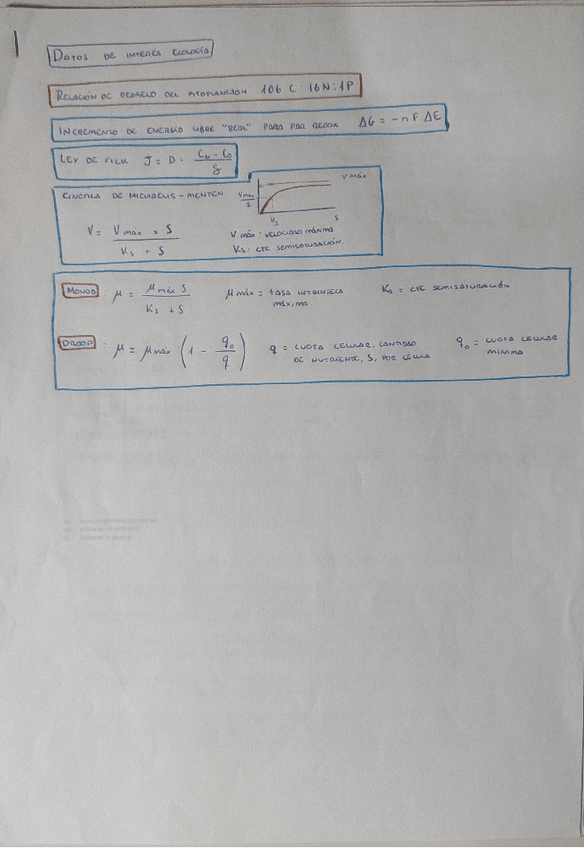 DATOS DE INTERÉS ECOLOGÍA
RELACIÓN DE REDFIELD DEL FITOPLANCTON 106 C : 16 N : 1P
INCREMENTO DE ENERGÍA LIBRE "REAL" PARA PAR REDOX ΔG = -n F ΔE
LEY DE FICK J = D · (C∞ - C0) / δ
CINÉTICA DE MICHAELIS-MENTEN
V máx
V máx / 2
Ks
S
V = (V máx × S) / (Ks + S)
V máx : VELOCIDAD MÁXIMA
Ks : CTE SEMISATURACIÓN.
MONOD μ = (μ máx S) / (Ks + S) μ máx = TASA INTRÍNSECA MÁXIMA Ks = CTE SEMISATURACIÓN
DROOP : μ = μ máx (1 - q0 / q) q = CUOTA CELULAR. CANTIDAD DE NUTRIENTE, S, POR CÉLULA q0 = CUOTA CELULAR MÍNIMA